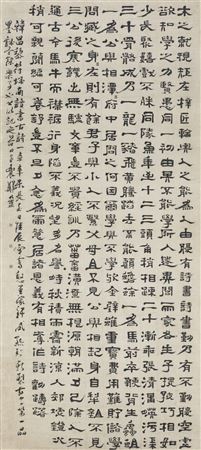 木之就規矩在梓匠輪輿人之能為人由腹有詩書詩書勤乃有不勤腹空虛
欲知學之力賢愚同一初由其不能學所入遂異閭兩家各生子提孩巧相如
少長聚嬉戲不殊同隊魚年至十二三頭角稍相疎二十漸乖張清溝映汙渠
三十骨骼成乃一龍一豬飛黃騰踏去不能顧蟾蜍一為馬前卒鞭背生蟲蛆
一為公與相潭潭府中居問之何因爾學與不學歟金璧雖重寶費用難貯儲學
問藏之身身在則有餘君子與小人不繫父母且不見公與相起身自犁鉏不見
三公後寒饑出無驢文章豈不貴經訓乃菑畬潢潦無根源朝滿夕已除人不
通古今馬牛而襟裾行身陷不義況望多名譽時秋積雨霽新涼入郊墟燈火
稍可親簡編可卷舒豈不旦夕念為爾惜居諸恩義有相奪作詩勸躊躇
韓昌黎符讀書城南詩